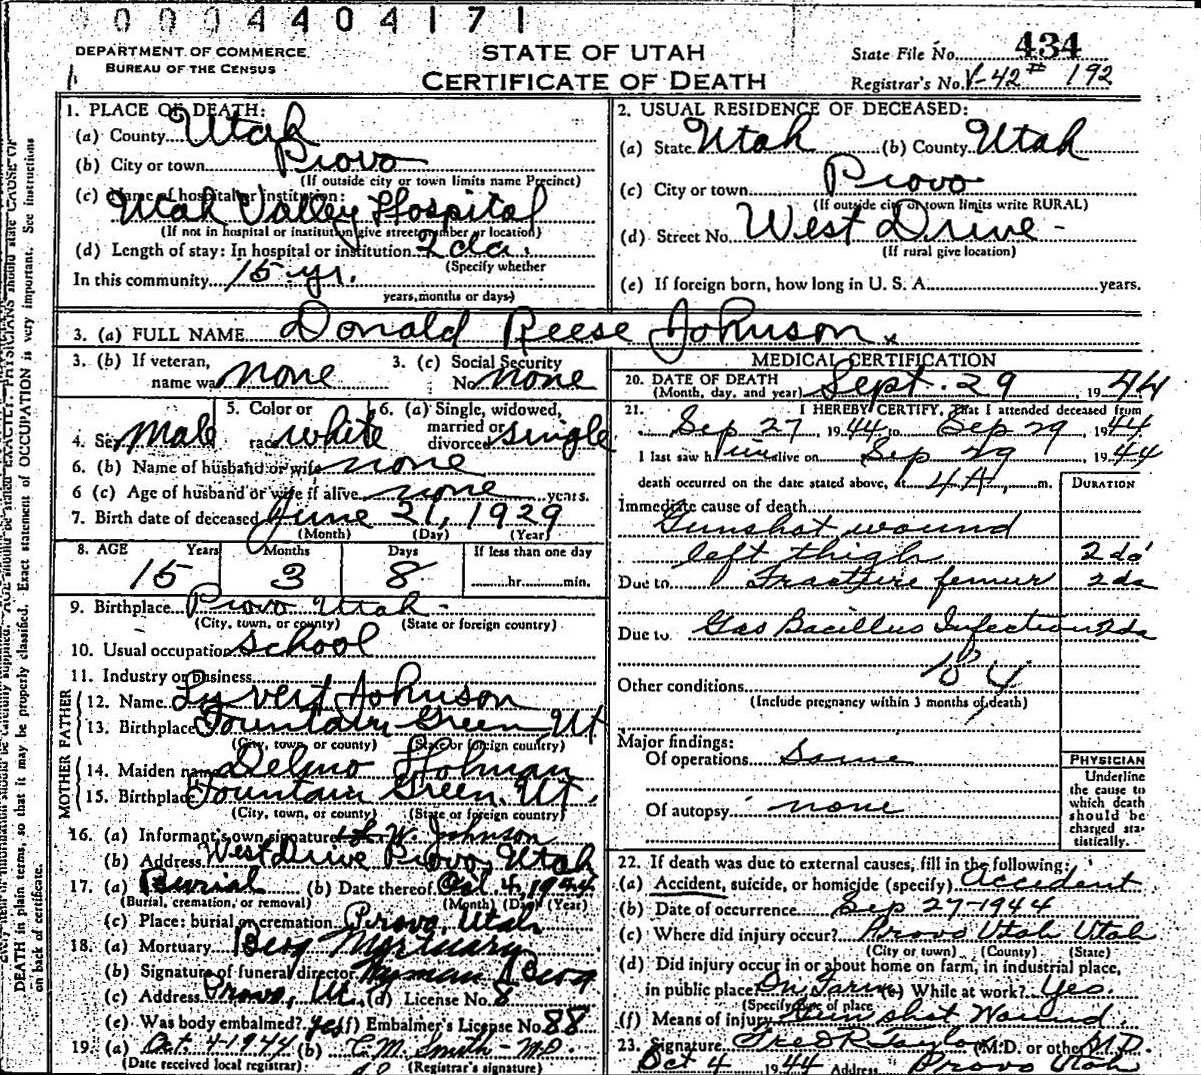 0004404171
DEPARTMENT OF COMMERCE
BUREAU OF THE CENSUS
STATE OF UTAH
CERTIFICATE OF DEATH
State File No. 434
Registrar's No. V-42# 192
1. PLACE OF DEATH:
(a) County Utah
(b) City or town Provo
(If outside city or town limits name Precinct)
(c) Name of hospital or institution:
Utah Valley Hospital
(If not in hospital or institution give street number or location)
(d) Length of stay: In hospital or institution 2 da.
(Specify whether
In this community 15 yr.
years, months or days)
2. USUAL RESIDENCE OF DECEASED:
(a) State Utah (b) County Utah
(c) City or town Provo
(If outside city or town limits write RURAL)
(d) Street No. West Drive
(If rural give location)
(e) If foreign born, how long in U. S. A. years.
3. (a) FULL NAME Donald Reese Johnson
3. (b) If veteran, name war none
3. (c) Social Security No. none
4. Sex Male
5. Color or race white
6. (a) Single, widowed, married or divorced single
6. (b) Name of husband or wife none
6 (c) Age of husband or wife if alive none years.
7. Birth date of deceased June 21, 1929
(Month) (Day) (Year)
8. AGE Years Months Days If less than one day
15 3 8 hr. min.
9. Birthplace Provo Utah
(City, town, or county) (State or foreign country)
10. Usual occupation school
11. Industry or business
FATHER
12. Name Lyvert Johnson
13. Birthplace Fountain Green Ut
(City, town, or county) (State or foreign country)
MOTHER
14. Maiden name Delmo Holman
15. Birthplace Fountain Green, Ut.
(City, town, or county) (State or foreign country)
16. (a) Informant's own signature W. Johnson
(b) Address West Drive Provo, Utah
17. (a) Burial (b) Date thereof Oct 4, 1944
(Burial, cremation, or removal) (Month) (Day) (Year)
(c) Place: burial or cremation Provo, Utah
18. (a) Mortuary Berg Mortuary
(b) Signature of funeral director Wyman Berg
(c) Address Provo, Ut. (d) License No. 8
(e) Was body embalmed? yes (f) Embalmer's License No. 88
19. (a) Oct. 4-1944 (b) C.M. Smith - M.D.
(Date received local registrar) (Registrar's signature)
MEDICAL CERTIFICATION
20. DATE OF DEATH
(Month, day, and year) Sept. 29, 1944
21. I HEREBY CERTIFY, That I attended deceased from
Sep 27, 1944 to Sep 29, 1944
I last saw him alive on Sep 29, 1944
death occurred on the date stated above, at 4 A. m.
DURATION
Immediate cause of death
Gunshot wound
left thigh 2 da
Due to Fracture femur 2 da
Due to Gas Bacillus Infection 2 da
184
Other conditions
(Include pregnancy within 3 months of death)
Major findings:
Of operations Same
Of autopsy none
PHYSICIAN
Underline
the cause to
which death
should be
charged sta-
tistically.
22. If death was due to external causes, fill in the following:
(a) Accident, suicide, or homicide (specify) Accident
(b) Date of occurrence Sep 27-1944
(c) Where did injury occur? Provo Utah Utah
(City or town) (County) (State)
(d) Did injury occur in or about home on farm, in industrial place,
in public place? On Farm (e) While at work? Yes.
(Specify type of place
(f) Means of injury Gun shot Wound
23. Signature Fred R Taylor (M.D. or other) M.D.
Oct 4 1944 Address Provo Utah